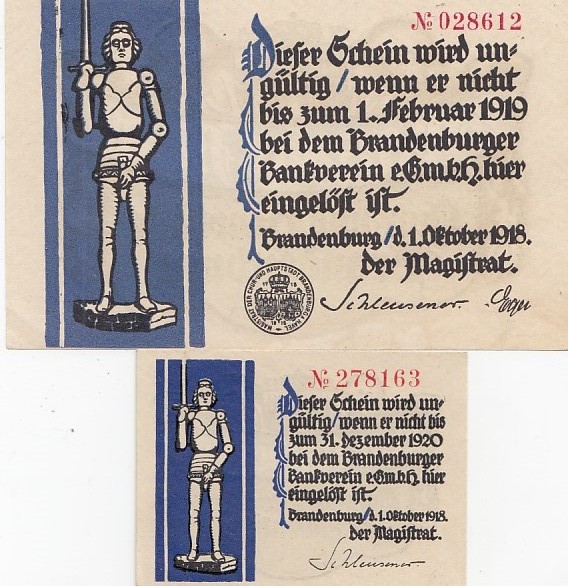 № 028612
Dieser Schein wird un=
gültig / wenn er nicht
bis zum 1. Februar 1919
bei dem Brandenburger
Bankverein e.G.m.b.H. hier
eingelöst ist.
Brandenburg / d. 1. Oktober 1918.
der Magistrat.
MAGISTRAT DER CHUR- UND HAUPTSTADT BRANDENBURG A. HAVEL
Schleusener.
№ 278163
Dieser Schein wird un=
gültig / wenn er nicht bis
zum 31. Dezember 1920
bei dem Brandenburger
Bankverein e.G.m.b.H. hier
eingelöst ist.
Brandenburg / d. 1. Oktober 1918.
der Magistrat.
Schleusener